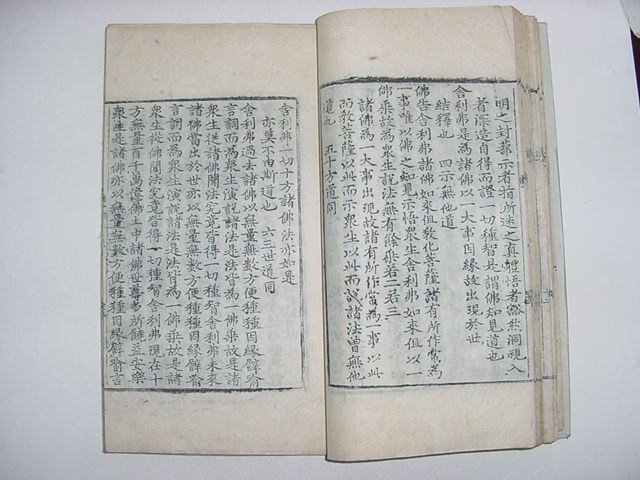 明之封蔀示者指所迷之真軆悟者豁然洞視入
者深造自得而證一切種智是謂佛知見道也
舍利弗是為諸佛以一大事因縁故出現於世
結釋也　四示無他道
佛告舍利弗諸佛如來但教化菩薩諸有所作常為
一事唯以佛之知見示悟衆生舍利弗如來但以一
佛乗故為衆生說法無有餘乗若二若三
諸佛為一大事出現故諸有所作常為一事以此
而教菩薩以此而示衆生以此而說諸法曾無他
道也　五十方道同
舍利弗一切十方諸佛法亦如是
亦莫不由斯道也　六三世道同
舍利弗過去諸佛以無量無數方便種種因縁譬喻
言詞而為衆生演說諸法是法皆為一佛乗故是諸
衆生從諸佛聞法究竟皆得一切種智舍利弗未來
諸佛當出於世亦以無量無數方便種種因縁譬喻
言詞而為衆生演說諸法是法皆為一佛乗故是諸
衆生從佛聞法究竟皆得一切種智舍利弗現在十
方無量百千萬億佛土中諸佛世尊多所饒益安樂
衆生是諸佛亦以無量無數方便種種因縁譬喻言